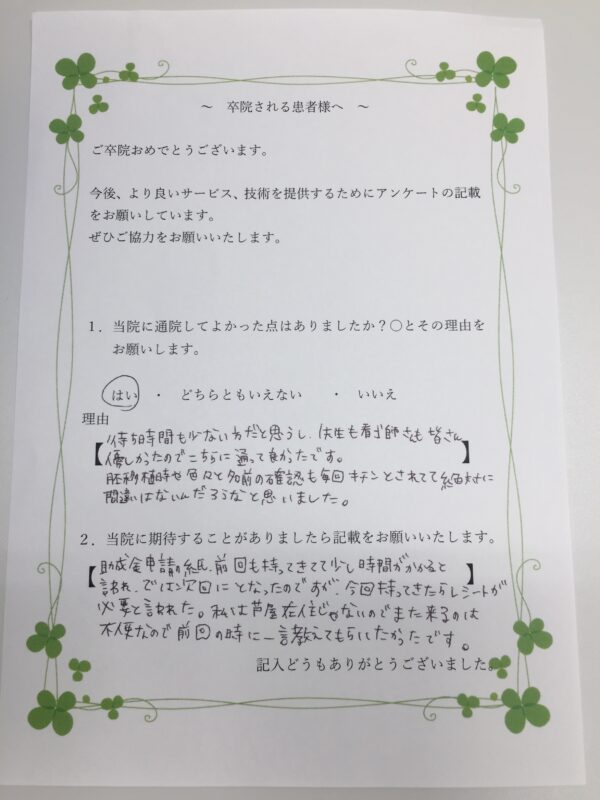 ～ 卒院される患者様へ ～
ご卒院おめでとうございます。
今後、より良いサービス、技術を提供するためにアンケートの記載
をお願いしています。
ぜひご協力をお願いいたします。
１．当院に通院してよかった点はありましたか？〇とその理由を
お願いします。
はい ・ どちらともいえない ・ いいえ
理由
【待ち時間も少ない方だと思うし、先生も看ゴ師さんも皆さん
優しかったのでこちらに通って良かったです。
胚移植時や色々と名前の確認も毎回キチンとされてて絶対に
間違いはないんだろうなと思いました。】
２．当院に期待することがありましたら記載をお願いいたします。
【助成金申請の紙、前回も持ってきてて少し時間がかかると
言われ、では次回にとなったのですが、今回持ってきたらレシートが
必要と言われた。私は芦屋在住じゃないのでまた来るのは
不便なので前回の時に一言教えてもらいたかったです。】
記入どうもありがとうございました。